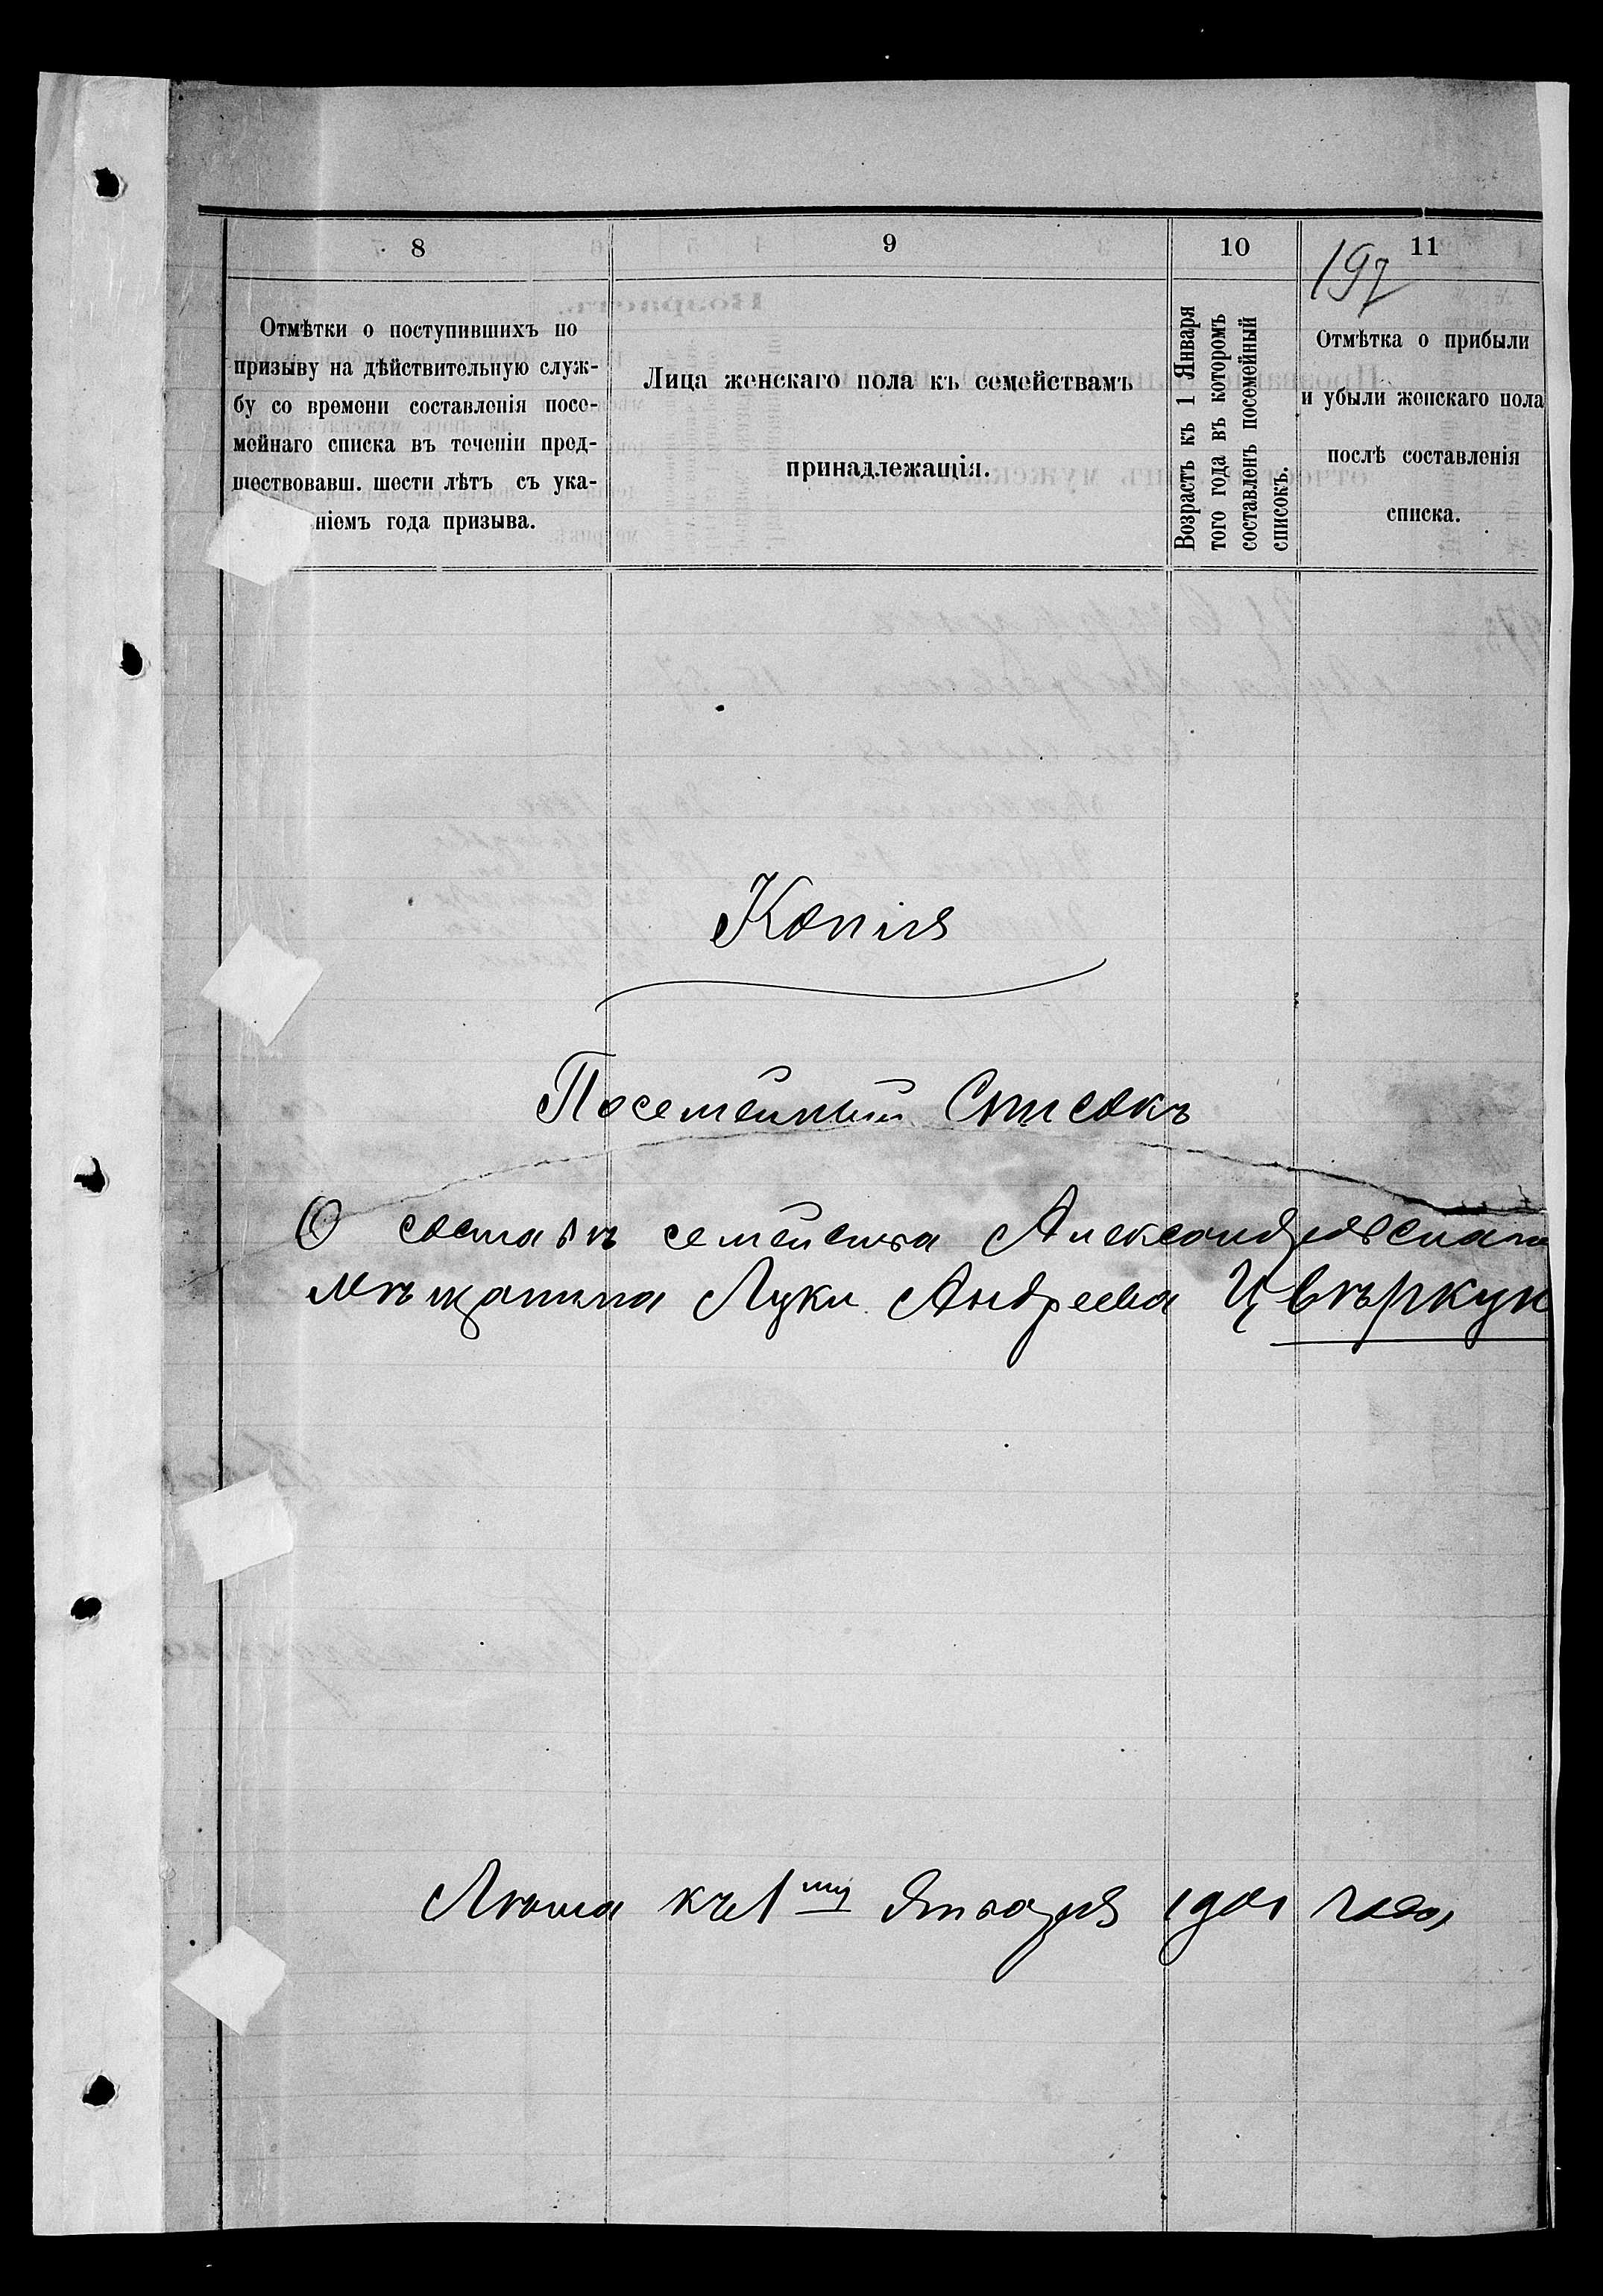 8 9 10 11
197
Отмѣтки о поступившихъ по
призыву на дѣйствительную служ-
бу со времени составленія посе-
мейнаго списка въ теченіи пред-
шествовавш. шести лѣтъ съ ука-
ніемъ года призыва.
Лица женскаго пола къ семействамъ
принадлежащія.
Возрастъ къ 1 Января
того года въ которомъ
составленъ посемейный
списокъ.
Отмѣтка о прибыли
и убыли женскаго пола
послѣ составленія
списка.
Копия
Посемейный Списокъ
О составѣ семейства Александровскаго
мѣщанина Луки Андреева Цвѣркун
Лѣта къ 1му Января 1901 года